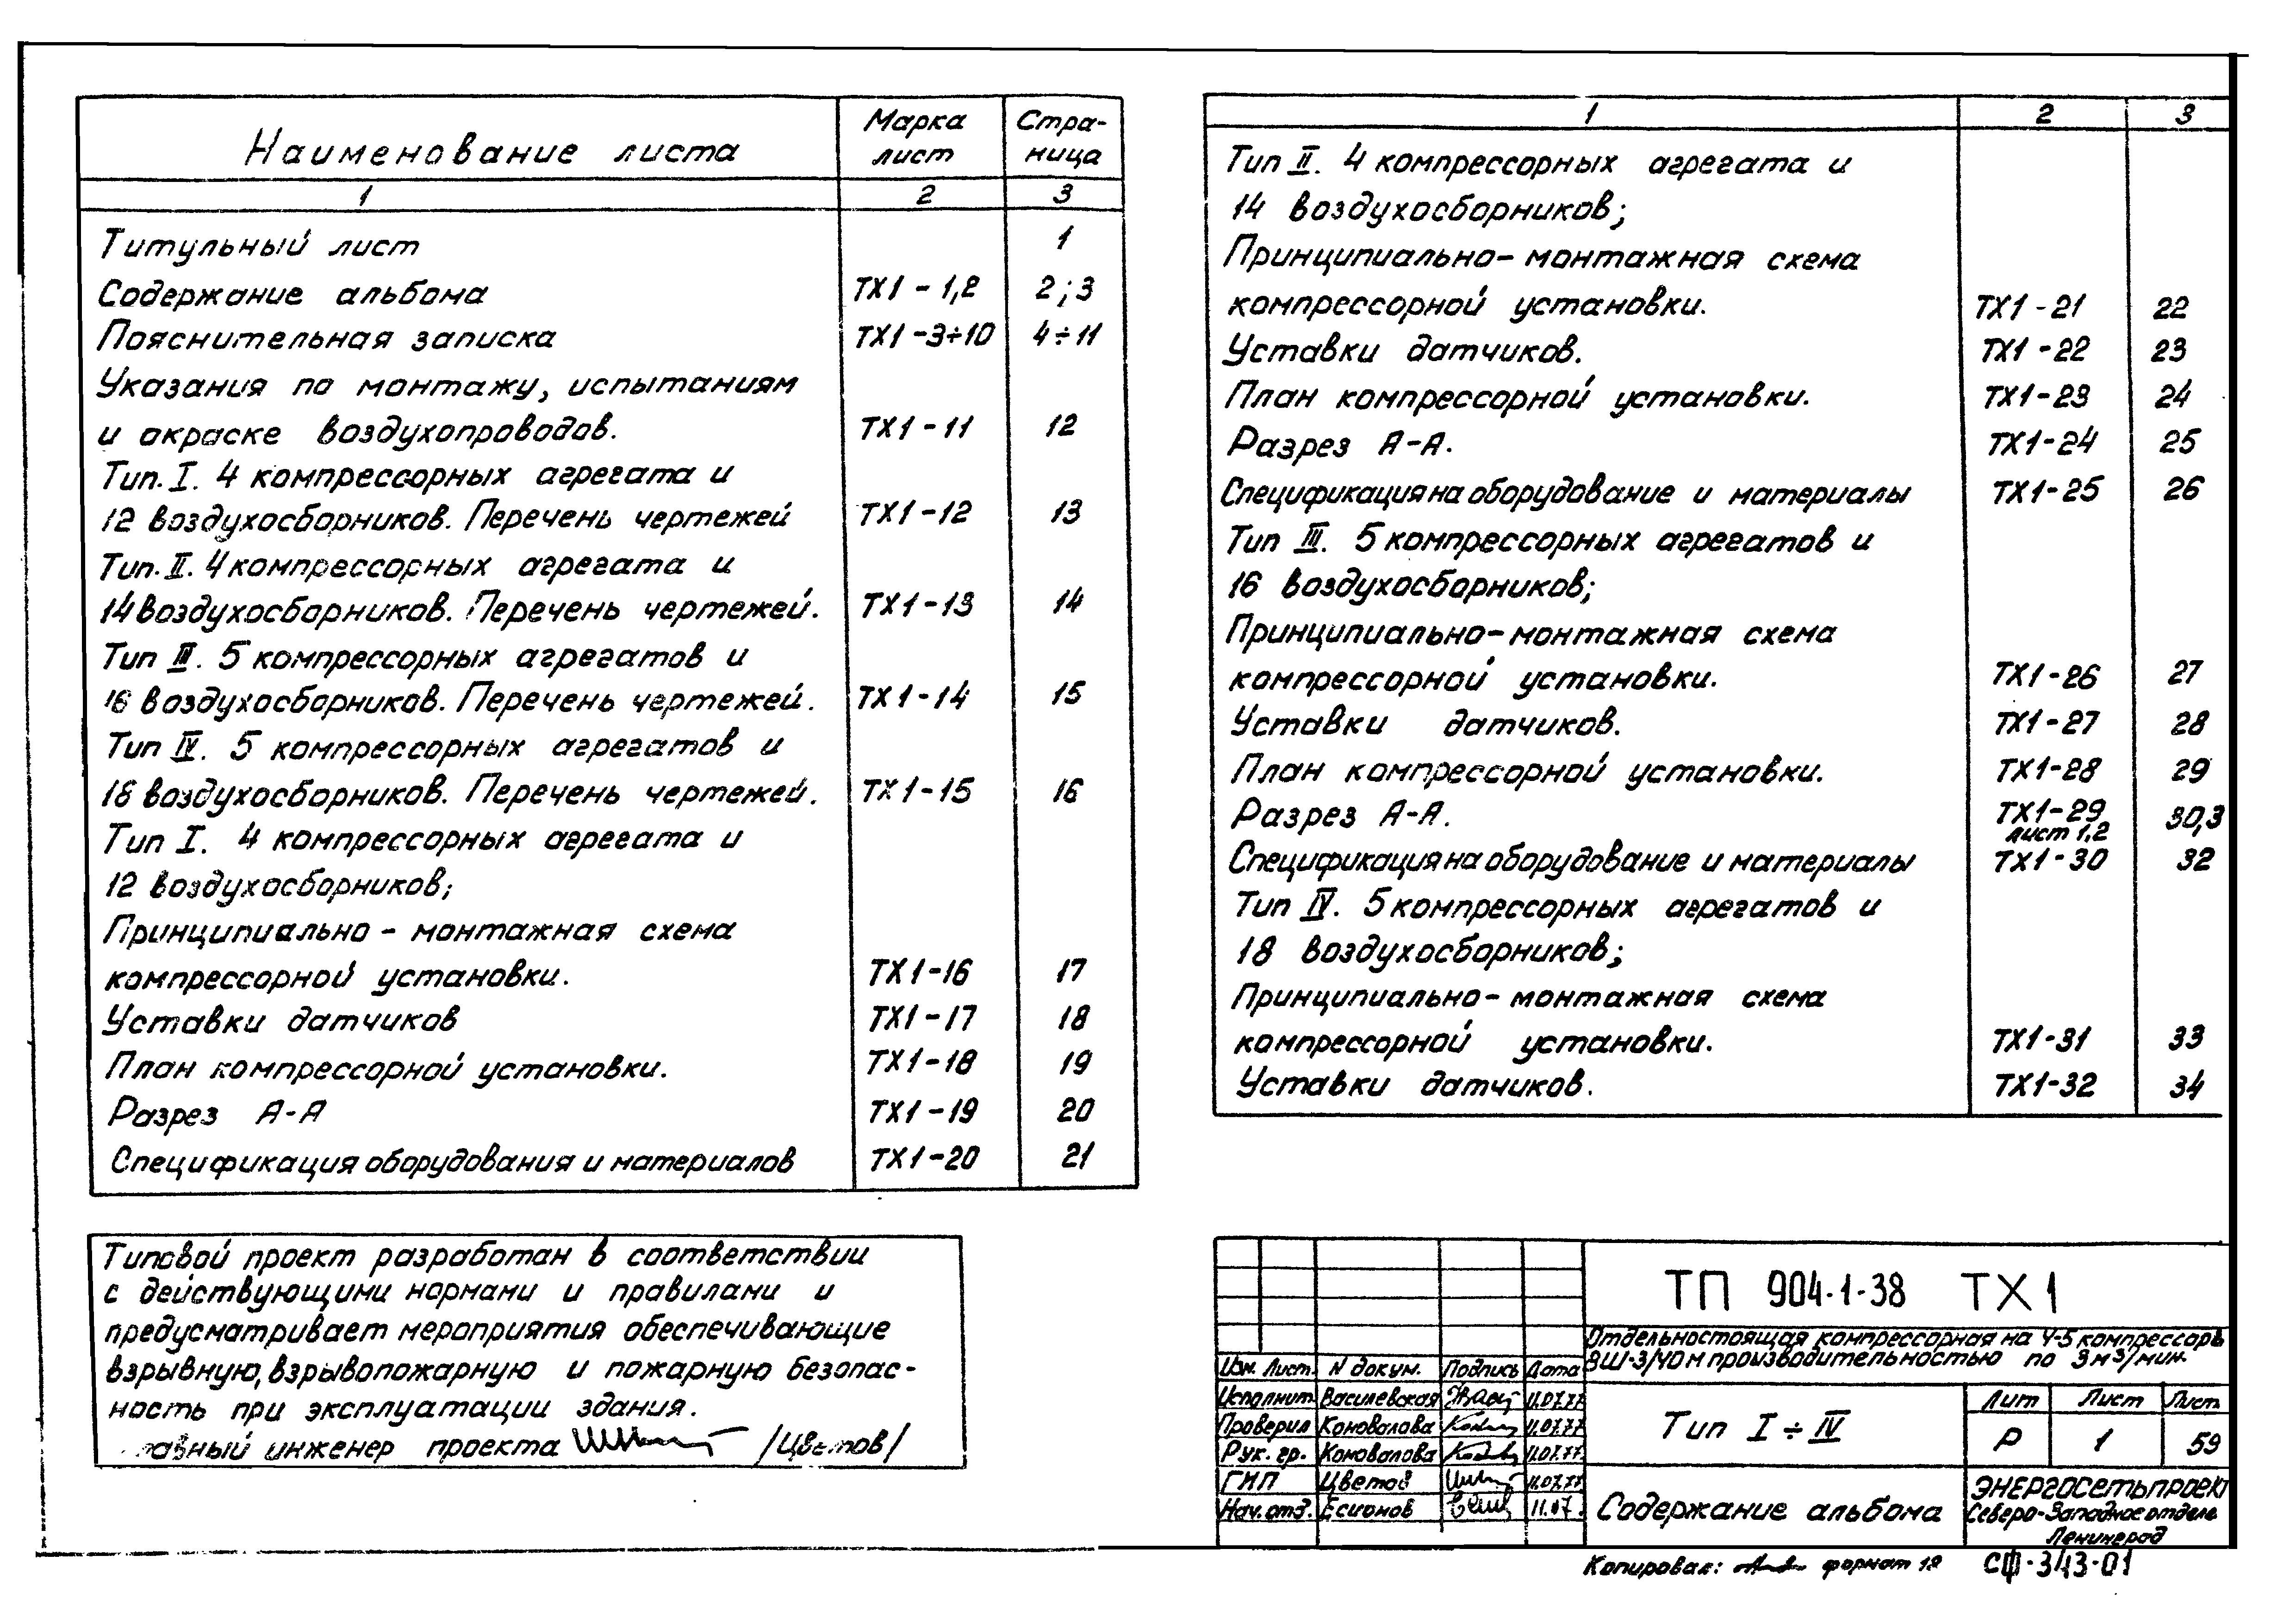 Наименование листа Марка лист Стра-ница
1 2 3
Титульный лист 1
Содержание альбома ТХ1-1,2 2;3
Пояснительная записка ТХ1-3÷10 4÷11
Указания по монтажу, испытаниям
и окраске воздухопроводов. ТХ1-11 12
Тип. I. 4 компрессорных агрегата и
12 воздухосборников. Перечень чертежей ТХ1-12 13
Тип. II. 4 компрессорных агрегата и
14 воздухосборников. Перечень чертежей. ТХ1-13 14
Тип III. 5 компрессорных агрегатов и
16 воздухосборников. Перечень чертежей. ТХ1-14 15
Тип IV. 5 компрессорных агрегатов и
18 воздухосборников. Перечень чертежей. ТХ1-15 16
Тип I. 4 компрессорных агрегата и
12 воздухосборников;
Принципиально-монтажная схема
компрессорной установки. ТХ1-16 17
Уставки датчиков ТХ1-17 18
План компрессорной установки. ТХ1-18 19
Разрез А-А ТХ1-19 20
Спецификация оборудования и материалов ТХ1-20 21
1 2 3
Тип II. 4 компрессорных агрегата и
14 воздухосборников;
Принципиально-монтажная схема
компрессорной установки. ТХ1-21 22
Уставки датчиков. ТХ1-22 23
План компрессорной установки. ТХ1-23 24
Разрез А-А. ТХ1-24 25
Спецификация на оборудование и материалы ТХ1-25 26
Тип III. 5 компрессорных агрегатов и
16 воздухосборников;
Принципиально-монтажная схема
компрессорной установки. ТХ1-26 27
Уставки датчиков. ТХ1-27 28
План компрессорной установки. ТХ1-28 29
Разрез А-А. ТХ1-29 лист 1,2 30,3
Спецификация на оборудование и материалы ТХ1-30 32
Тип IV. 5 компрессорных агрегатов и
18 воздухосборников;
Принципиально-монтажная схема
компрессорной установки. ТХ1-31 33
Уставки датчиков. ТХ1-32 34
Типовой проект разработан в соответствии
с действующими нормами и правилами и
предусматривает мероприятия обеспечивающие
взрывную, взрывопожарную и пожарную безопас-
ность при эксплуатации здания.
лавный инженер проекта /Цветов/
ТП 904-1-38 ТХ1
Отдельностоящая компрессорная на 4-5 компрессоров
ВШ-3/40м производительностью по 3 м³/мин.
Изм. Лист. N докум. Подпись Дата
Исполнит. Василевская 11.07.77
Проверил Коновалова 11.07.77
Рук. гр. Коновалова 11.07.77
ГИП Цветов 11.07.77
Нач. отд. Есионов 11.07.
Тип I÷IV
Лит Лист Лист.
Р 1 59
Содержание альбома
ЭНЕРГОСЕТЬПРОЕКТ
Северо-Западное отделе
Ленинград
Копировал: формат 12 СФ-343-01